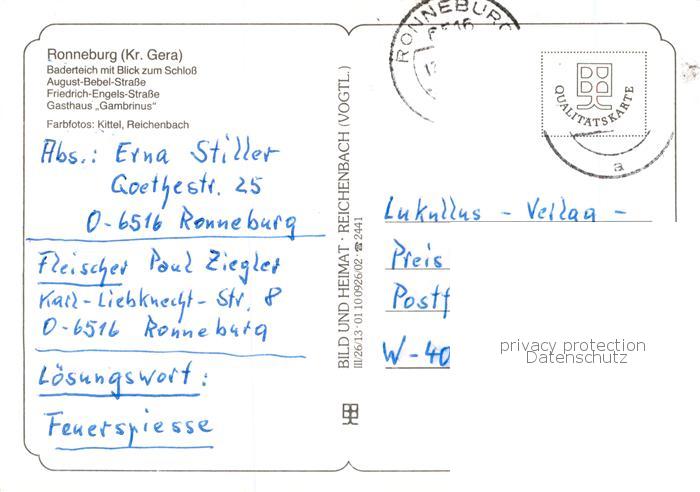 Ronneburg (Kr. Gera)
Baderteich mit Blick zum Schloß
August-Bebel-Straße
Friedrich-Engels-Straße
Gasthaus „Gambrinus"
Farbfotos: Kittel, Reichenbach
Abs.: Erna Stiller
Goethestr. 25
O-6516 Ronneburg
Fleischer Paul Ziegler
Karl-Liebknecht-Str. 8
O-6516 Ronneburg
Lösungswort:
Feuerspiesse
BILD UND HEIMAT · REICHENBACH (VOGTL.)
III/26/13 · 01 10 0926/02 · ☎ 2441
RONNEBURG
6516
QUALITÄTSKARTE
a
Lukullus - Verlag -
Preis
Postf
W-40
privacy protection
Datenschutz